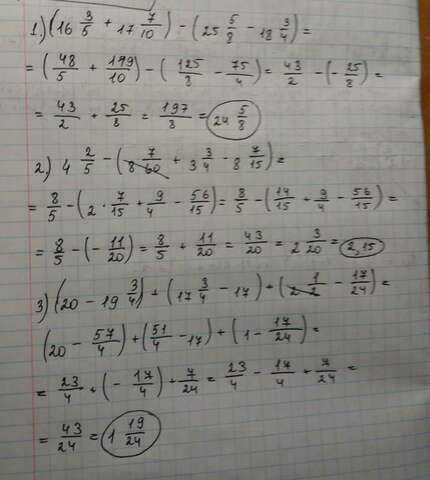 1.) (16 3/5 + 17 7/10) - (25 5/8 - 18 3/4) =
= (48/5 + 119/10) - (125/8 - 75/4) = 43/2 - (- 25/8) =
= 43/2 + 25/8 = 197/8 = 24 5/8
2.) 4 2/5 - ( + 3 3/4 - 8 7/15) =
= 8/5 - (2 · 7/15 + 9/4 - 56/15) = 8/5 - (14/15 + 9/4 - 56/15) =
= 8/5 - (- 11/20) = 8/5 + 11/20 = 43/20 = 2 3/20 = 2,15
3) (20 - 19 3/4) + (17 3/4 - 17) + (2 1/2 - 17/24) =
(20 - 57/4) + (51/4 - 17) + (1 - 17/24) =
= 23/4 + (- 17/4) + 7/24 = 23/4 - 17/4 + 7/24 =
= 43/24 = 1 19/24